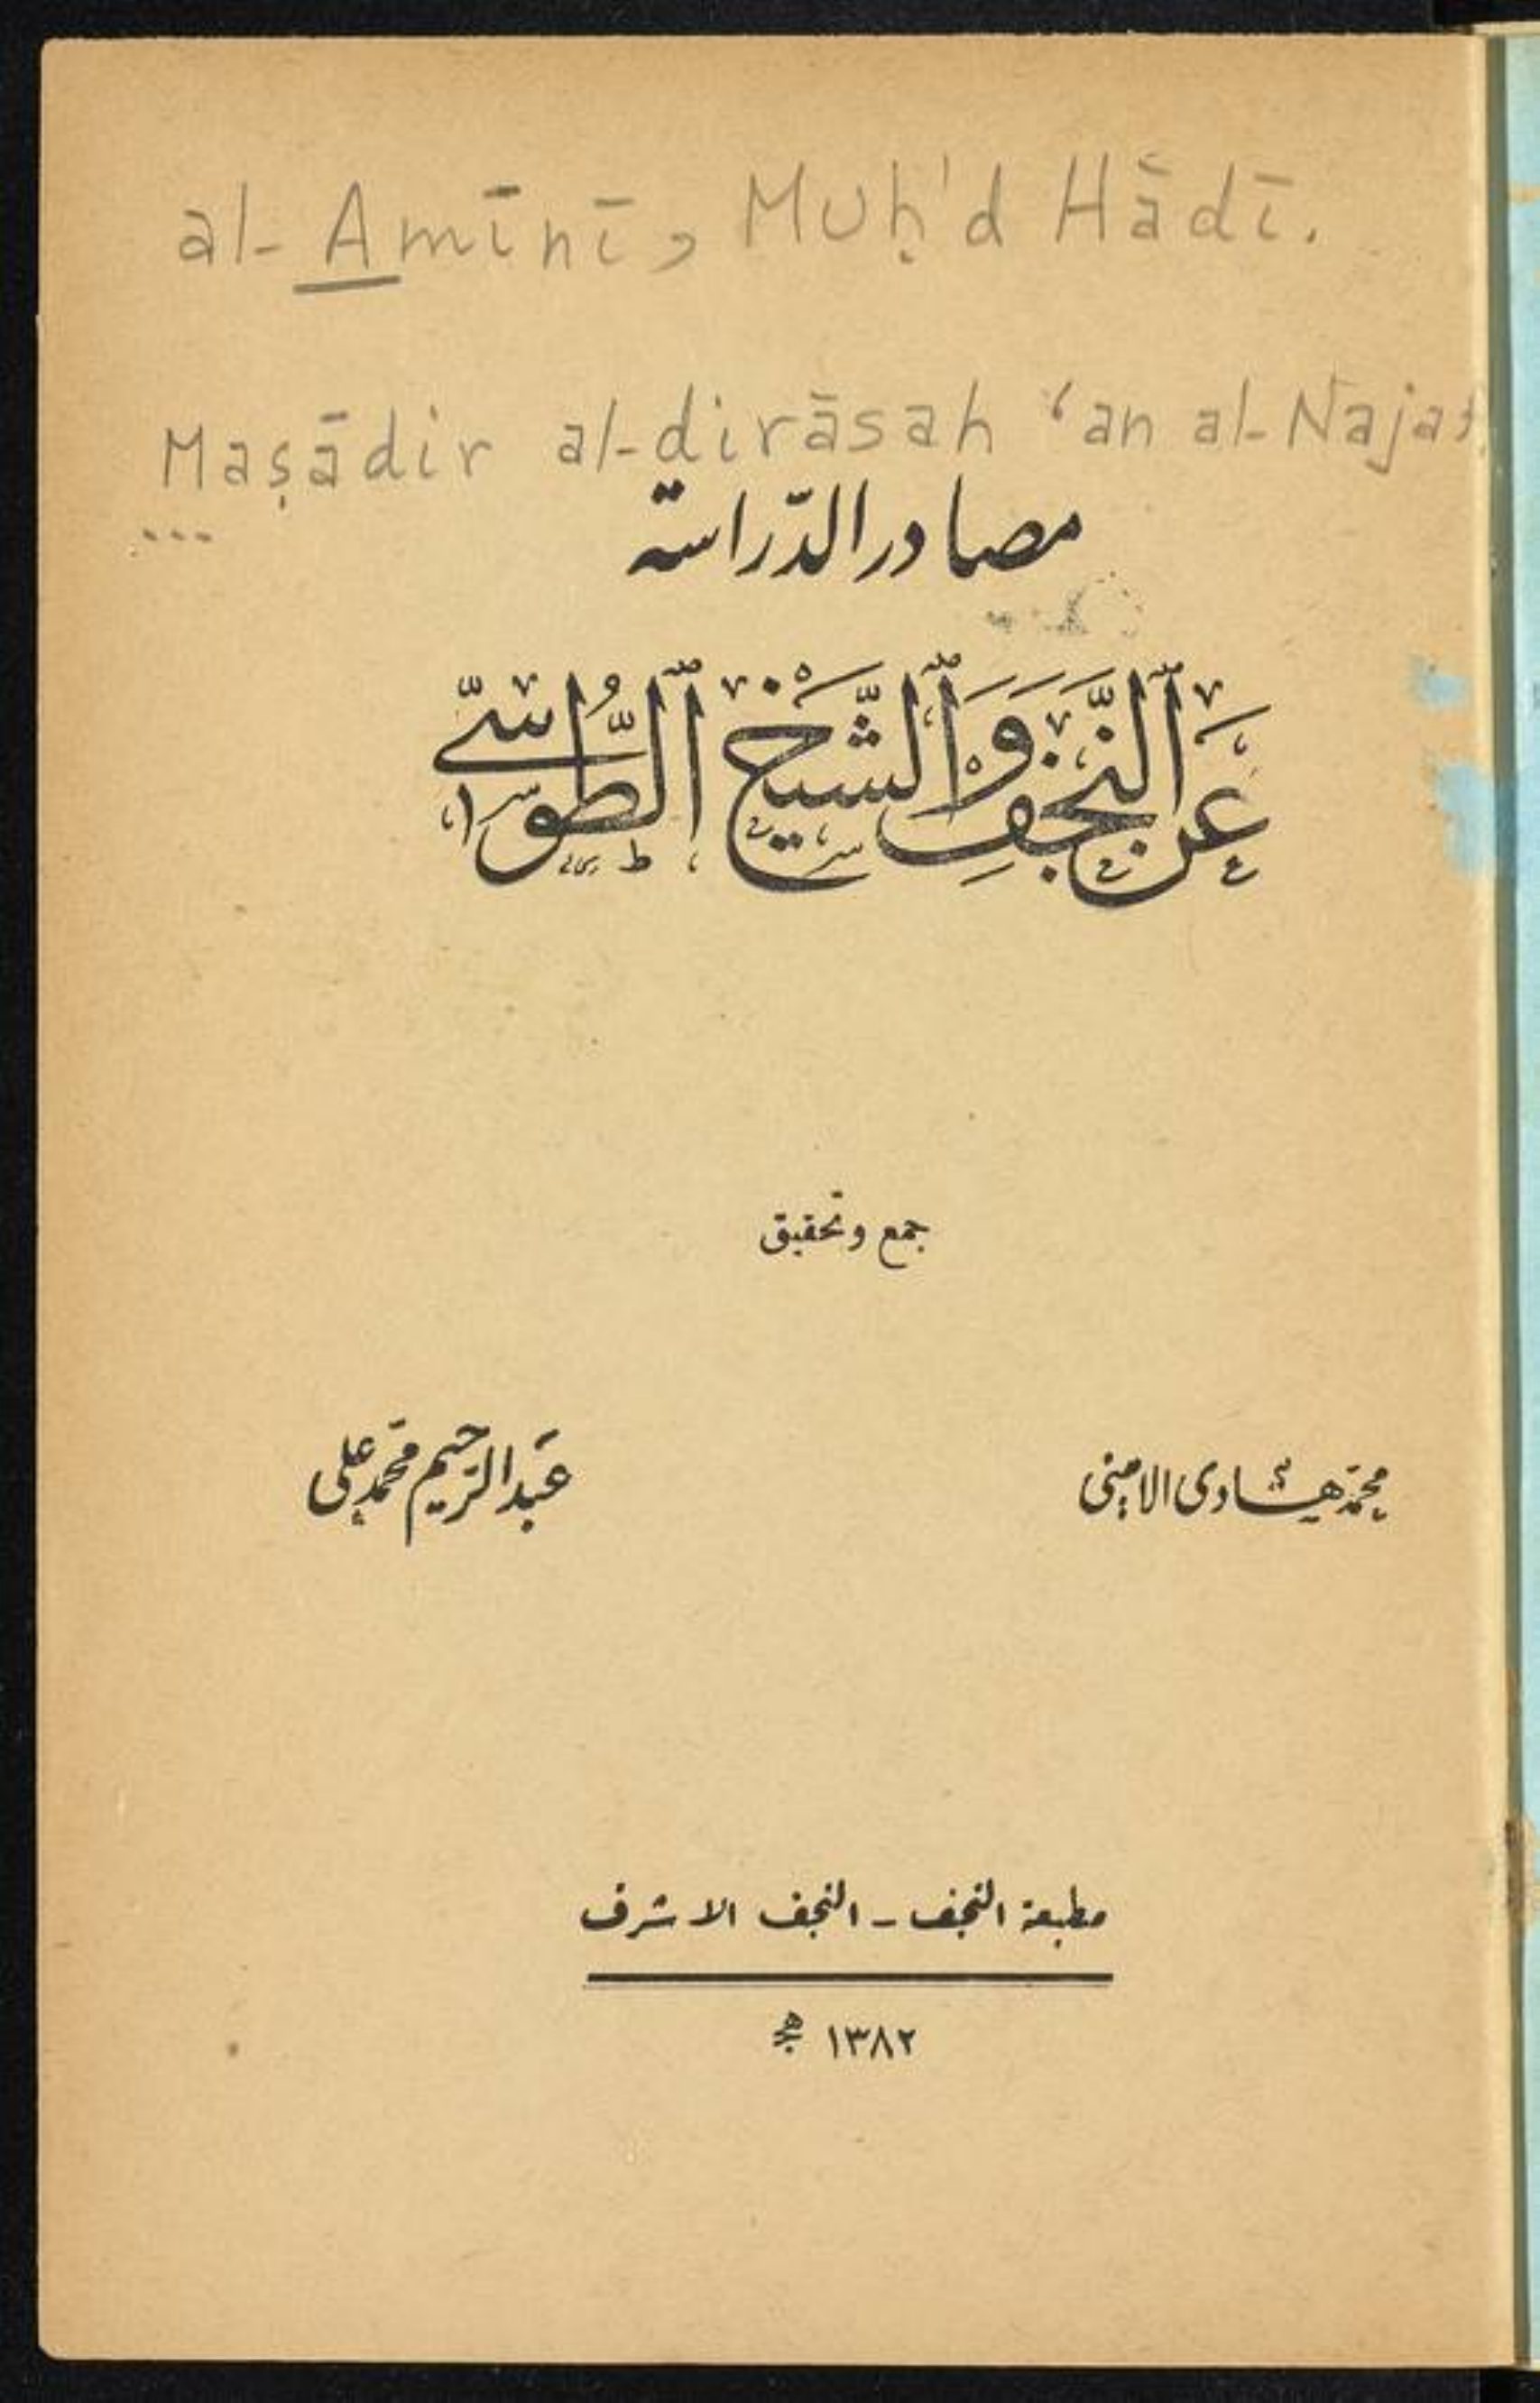 al-Amīnī, Muḥ'd Hādī.
Maṣādir al-dirāsah ‘an al-Najaf
...
مصادر الدّراسة
عَنِ ٱلنَّجَفِ وَٱلشَّيْخِ ٱلطُّوسِيّ
جمع وتحقيق
محمّد هادی الامینی
عَبد الرّحیم محمّد علی
مطبعة النجف - النجف الاشرف
١٣٨٢ هج